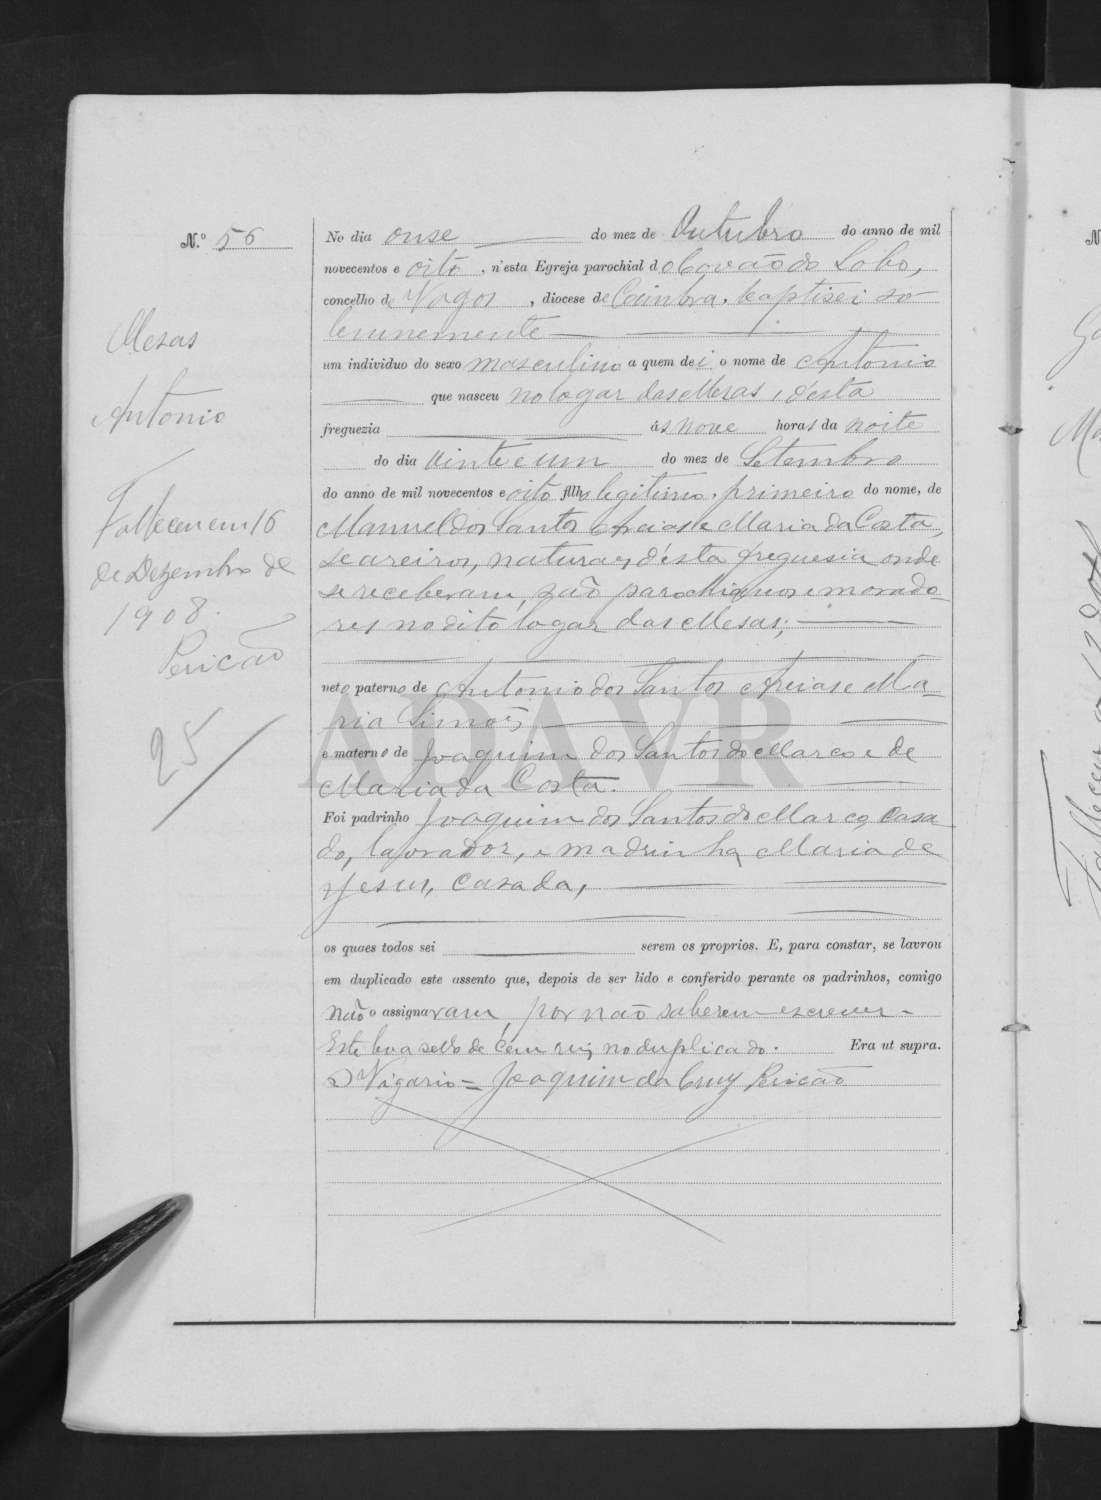 N.º 56
Mesas
Antonio
Falleceu em 16
de Dezembro de
1908.
Pericão
25
No dia onse do mez de Outubro do anno de mil
novecentos e oito, n'esta Egreja parochial do Covão do Lobo,
concelho de Vagos, diocese de Coimbra, baptisei so-
lemnemente
um individuo do sexo masculino a quem dei o nome de Antonio
que nasceu no logar das Mesas, d'esta
freguezia ás nove horas da noite
do dia vinte e um do mez de Setembro
do anno de mil novecentos e oito filho legitimo, primeiro do nome, de
Manuel dos Santos Areias e Maria da Costa,
seareiros, naturaes d'ésta freguesia onde
se receberam, são parochianos e morado-
res no dito logar das Mesas;
neto paterno de Antonio dos Santos Areias e Ma-
ria Simões
e materno de Joaquim dos Santos do Marco e de
Maria da Costa.
Foi padrinho Joaquim dos Santos do Marco, casa-
do, lavrador, e madrinha Maria de
Jesus, casada,
os quaes todos sei serem os proprios. E, para constar, se lavrou
em duplicado este assento que, depois de ser lido e conferido perante os padrinhos, comigo
não o assignaram, por não saberem escrever.
Este leva sello de cem reis no duplicado. Era ut supra.
O Vigario = Joaquim da Cruz Pericão
ADAVR